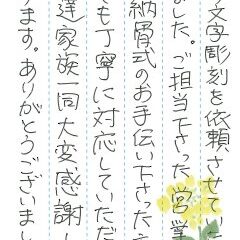 文字彫刻を依頼させてい
ました。ご担当下さった営業
納骨式のお手伝い下さった
も丁寧に対応していただ
達家族一同大変感謝し
ります。ありがとうございまし